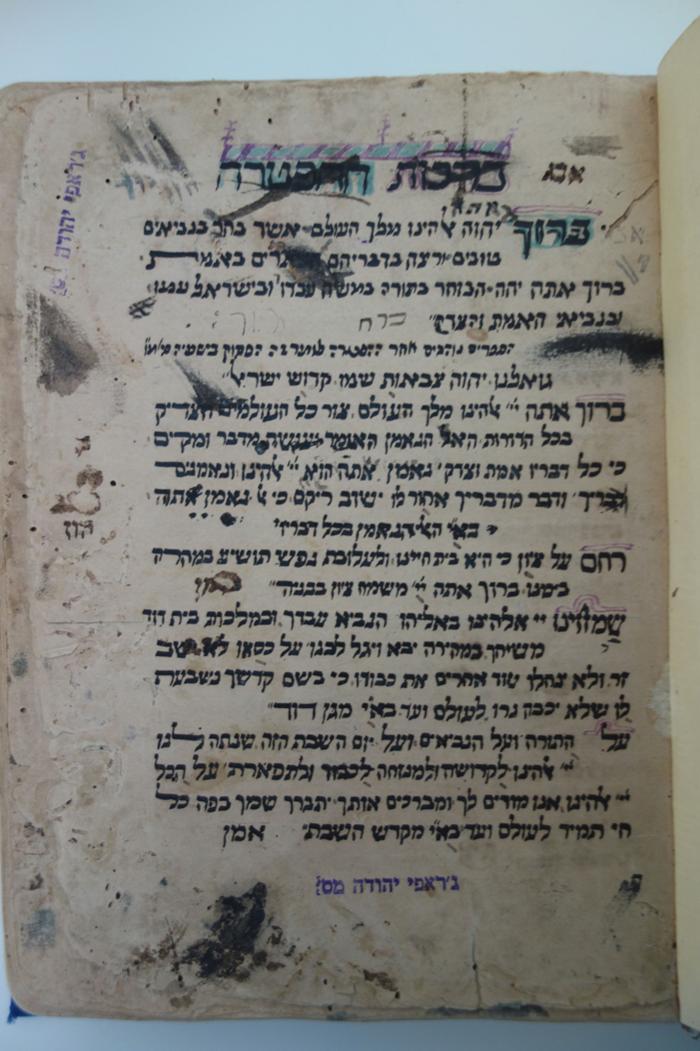 ברכות ההפטרה
אתה
ברוך יהוה אלהינו מלך העולם אשר בחר בנביאים
טובים ורצה בדבריהם הנאמרים באמת
ברוך אתה יהוה הבוחר בתורה במשה עבדו ובישראל עמו
ובנביאי האמת והצדק
גואלנו יהוה צבאות שמו קדוש ישראל
ברוך אתה יי אלהינו מלך העולם צור כל העולמים הצדיק
בכל הדורות האל הנאמן האומר ועושה מדבר ומקים
כי כל דבריו אמת וצדק נאמן אתה הוא יי אלהינו ונאמנים
דבריך ודבר מדבריך אחור לא ישוב ריקם כי נאמן אתה
בא״י האל הנאמן בכל דבריו
רחם על ציון כי היא בית חיינו ולעלובת נפש תושיע במהרה
בימנו ברוך אתה יי משמח ציון בבניה
שמחינו יי אלהינו באליהו הנביא עבדך ובמלכות בית דוד
משיחך במהרה יבא ויגל לבנו על כסאו לא ישב
זר ולא ינחלו עוד אחרים את כבודו כי בשם קדשך נשבעת
לו שלא יכבה נרו לעולם ועד בא״י מגן דוד
על התורה ועל הנביאים ועל יום השבת הזה שנתת לנו
יי אלהינו לקדושה ולמנוחה לכבוד ולתפארת על הכל
יי אלהינו אנו מודים לך ומברכים אותך יתברך שמך בפה כל
חי תמיד לעולם ועד בא״י מקדש השבת אמן
ג'ראפי יהודה
ג'ראפי יהודה